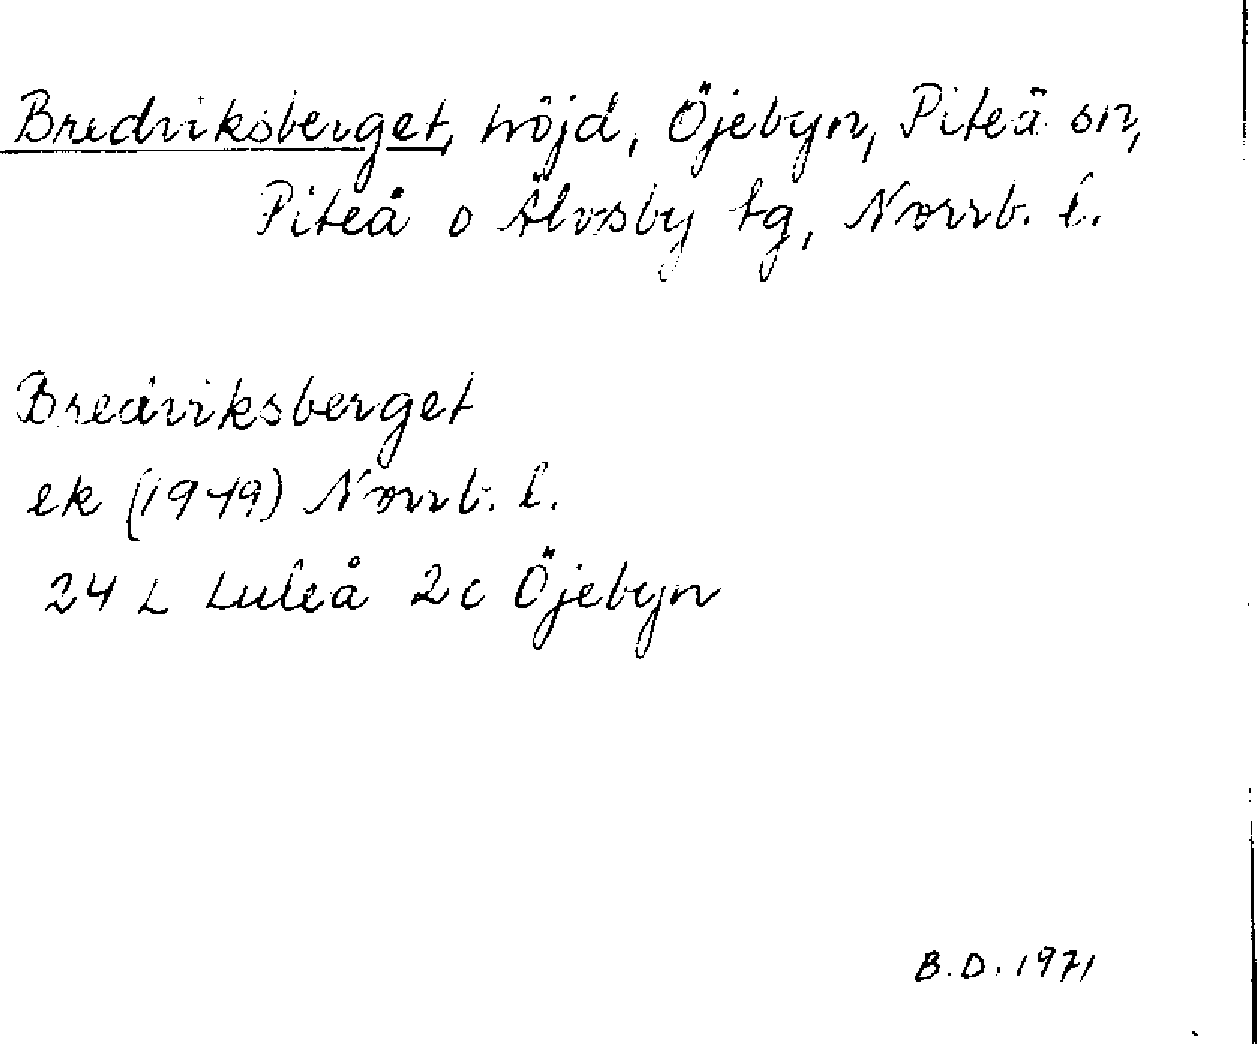 Bredviksberget, höjd, Öjebyn, Piteå sn,
Piteå o Älvsby tg, Norrb. l.
Bredviksberget
ek (1949) Norrb. l.
24 L Luleå 2c Öjebyn
B.D. 1971